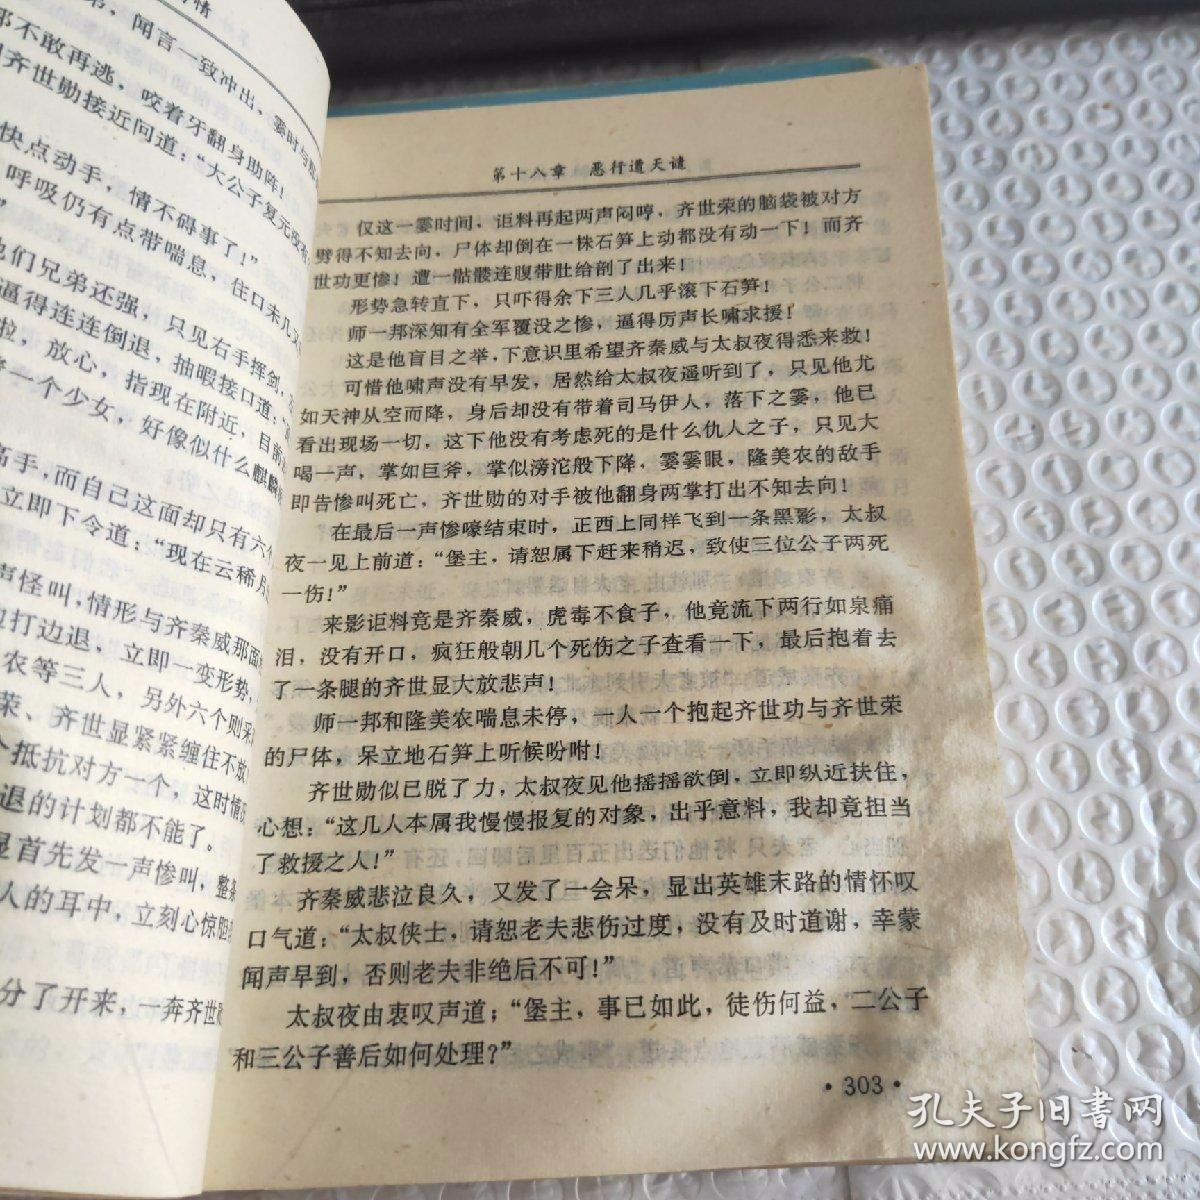 情
弟，闻言一致冲出，霎时与
那不敢再逃，咬着牙翻身助阵！
齐世勋接近问道：“大公子复元没有
快点动手，情不碍事了！”
呼吸仍有点带喘息，住口未几又
”
他们兄弟还强，只见右手挥剑，
逼得连连倒退，抽暇接口道：
啦，放心，指现在附近，目前
一个少女，好像似什么麒麟
高手，而自己这面却只有六个
立即下令道：“现在云稀月
声怪叫，情形与齐秦威那面
边打边退，立即一变形势，
农等三人，另外六个则采
荣、齐世显紧紧缠住不放
个抵抗对方一个，这时情况
退的计划都不能了。
显首先发一声惨叫，整条
人的耳中，立刻心惊胆
分了开来，一奔齐世勋
第十八章 恶行遭天谴
仅这一霎时间，讵料再起两声闷哼，齐世荣的脑袋被对方
劈得不知去向，尸体却倒在一株石笋上动都没有动一下！而齐
世功更惨！遭一骷髅连腹带肚给剖了出来！
形势急转直下，只吓得余下三人几乎滚下石笋！
师一邦深知有全军覆没之惨，逼得厉声长啸求援！
这是他盲目之举，下意识里希望齐秦威与太叔夜得悉来救！
可惜他啸声没有早发，居然给太叔夜遥听到了，只见他尤
如天神从空而降，身后却没有带着司马伊人，落下之霎，他已
看出现场一切，这下他没有考虑死的是什么仇人之子，只见大
喝一声，掌如巨斧，掌似滂沱般下降，霎霎眼，隆美农的敌手
即告惨叫死亡，齐世勋的对手被他翻身两掌打出不知去向！
在最后一声惨嚎结束时，正西上同样飞到一条黑影，太叔
夜一见上前道：“堡主，请恕属下赶来稍迟，致使三位公子两死
一伤！”
来影讵料竟是齐秦威，虎毒不食子，他竟流下两行如泉痛
泪，没有开口，疯狂般朝几个死伤之子查看一下，最后抱着去
了一条腿的齐世显大放悲声！
师一邦和隆美农喘息未停，一人一个抱起齐世功与齐世荣
的尸体，呆立地石笋上听候吩咐！
齐世勋似已脱了力，太叔夜见他摇摇欲倒，立即纵近扶住，
心想：“这几人本属我慢慢报复的对象，出乎意料，我却竟担当
了救援之人！”
齐秦威悲泣良久，又发了一会呆，显出英雄末路的情怀叹
口气道：“太叔侠士，请恕老夫悲伤过度，没有及时道谢，幸蒙
闻声早到，否则老夫非绝后不可！”
太叔夜由衷叹声道；“堡主，事已如此，徒伤何益，二公子
和三公子善后如何处理？”
·303·
孔夫子旧书网
www.kongfz.com